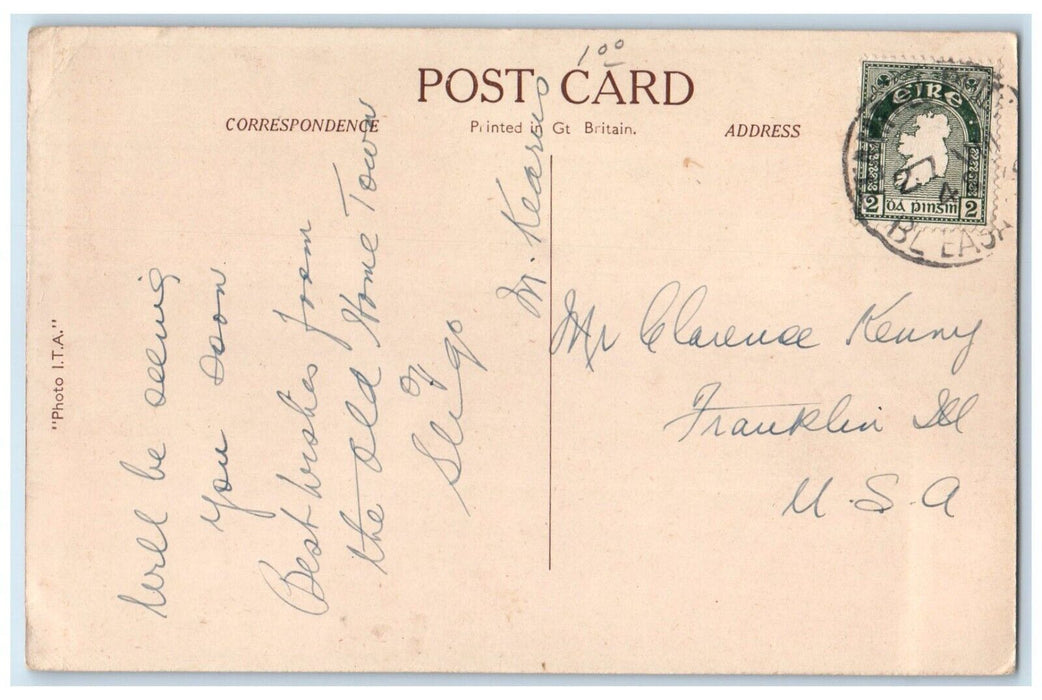 POST CARD
1 00
CORRESPONDENCE
Printed in Gt Britain.
ADDRESS
ÉIRE
2 DÁ PINSIN 2
"Photo I.T.A."
Will be seeing
you soon
Best wishes from
the old Home Town
of
Sligo
M. Kearns
Mr Clarence Kenny
Franklin Ill
U.S.A